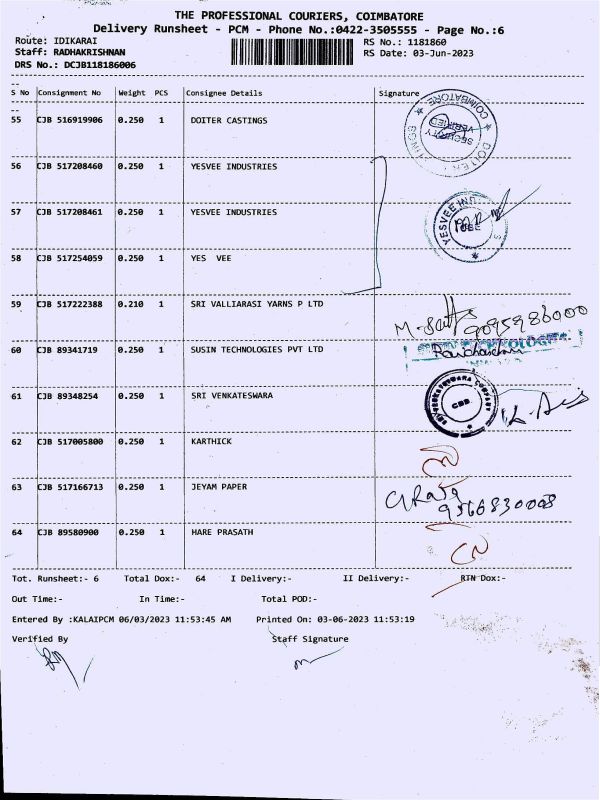 THE PROFESSIONAL COURIERS, COIMBATORE
Delivery Runsheet - PCM - Phone No.:0422-3505555 - Page No.:6
Route: IDIKARAI RS No.: 1181860
Staff: RADHAKRISHNAN RS Date: 03-Jun-2023
DRS No.: DCJB118186006
S No Consignment No Weight PCS Consignee Details Signature
55 CJB 516919906 0.250 1 DOITER CASTINGS
COIMBATORE
SECURITY
VERIFIED
DOITER
56 CJB 517208460 0.250 1 YESVEE INDUSTRIES
57 CJB 517208461 0.250 1 YESVEE INDUSTRIES
YESVEE
CBE
58 CJB 517254059 0.250 1 YES VEE
59 CJB 517222388 0.210 1 SRI VALLIARASI YARNS P LTD
9095986000
60 CJB 89341719 0.250 1 SUSIN TECHNOLOGIES PVT LTD
61 CJB 89348254 0.250 1 SRI VENKATESWARA
62 CJB 517005800 0.250 1 KARTHICK
63 CJB 517166713 0.250 1 JEYAM PAPER
9566830008
64 CJB 89580900 0.250 1 HARE PRASATH
Tot. Runsheet:- 6 Total Dox:- 64 I Delivery:- II Delivery:- RTN Dox:-
Out Time:- In Time:- Total POD:-
Entered By :KALAIPCM 06/03/2023 11:53:45 AM Printed On: 03-06-2023 11:53:19
Verified By Staff Signature